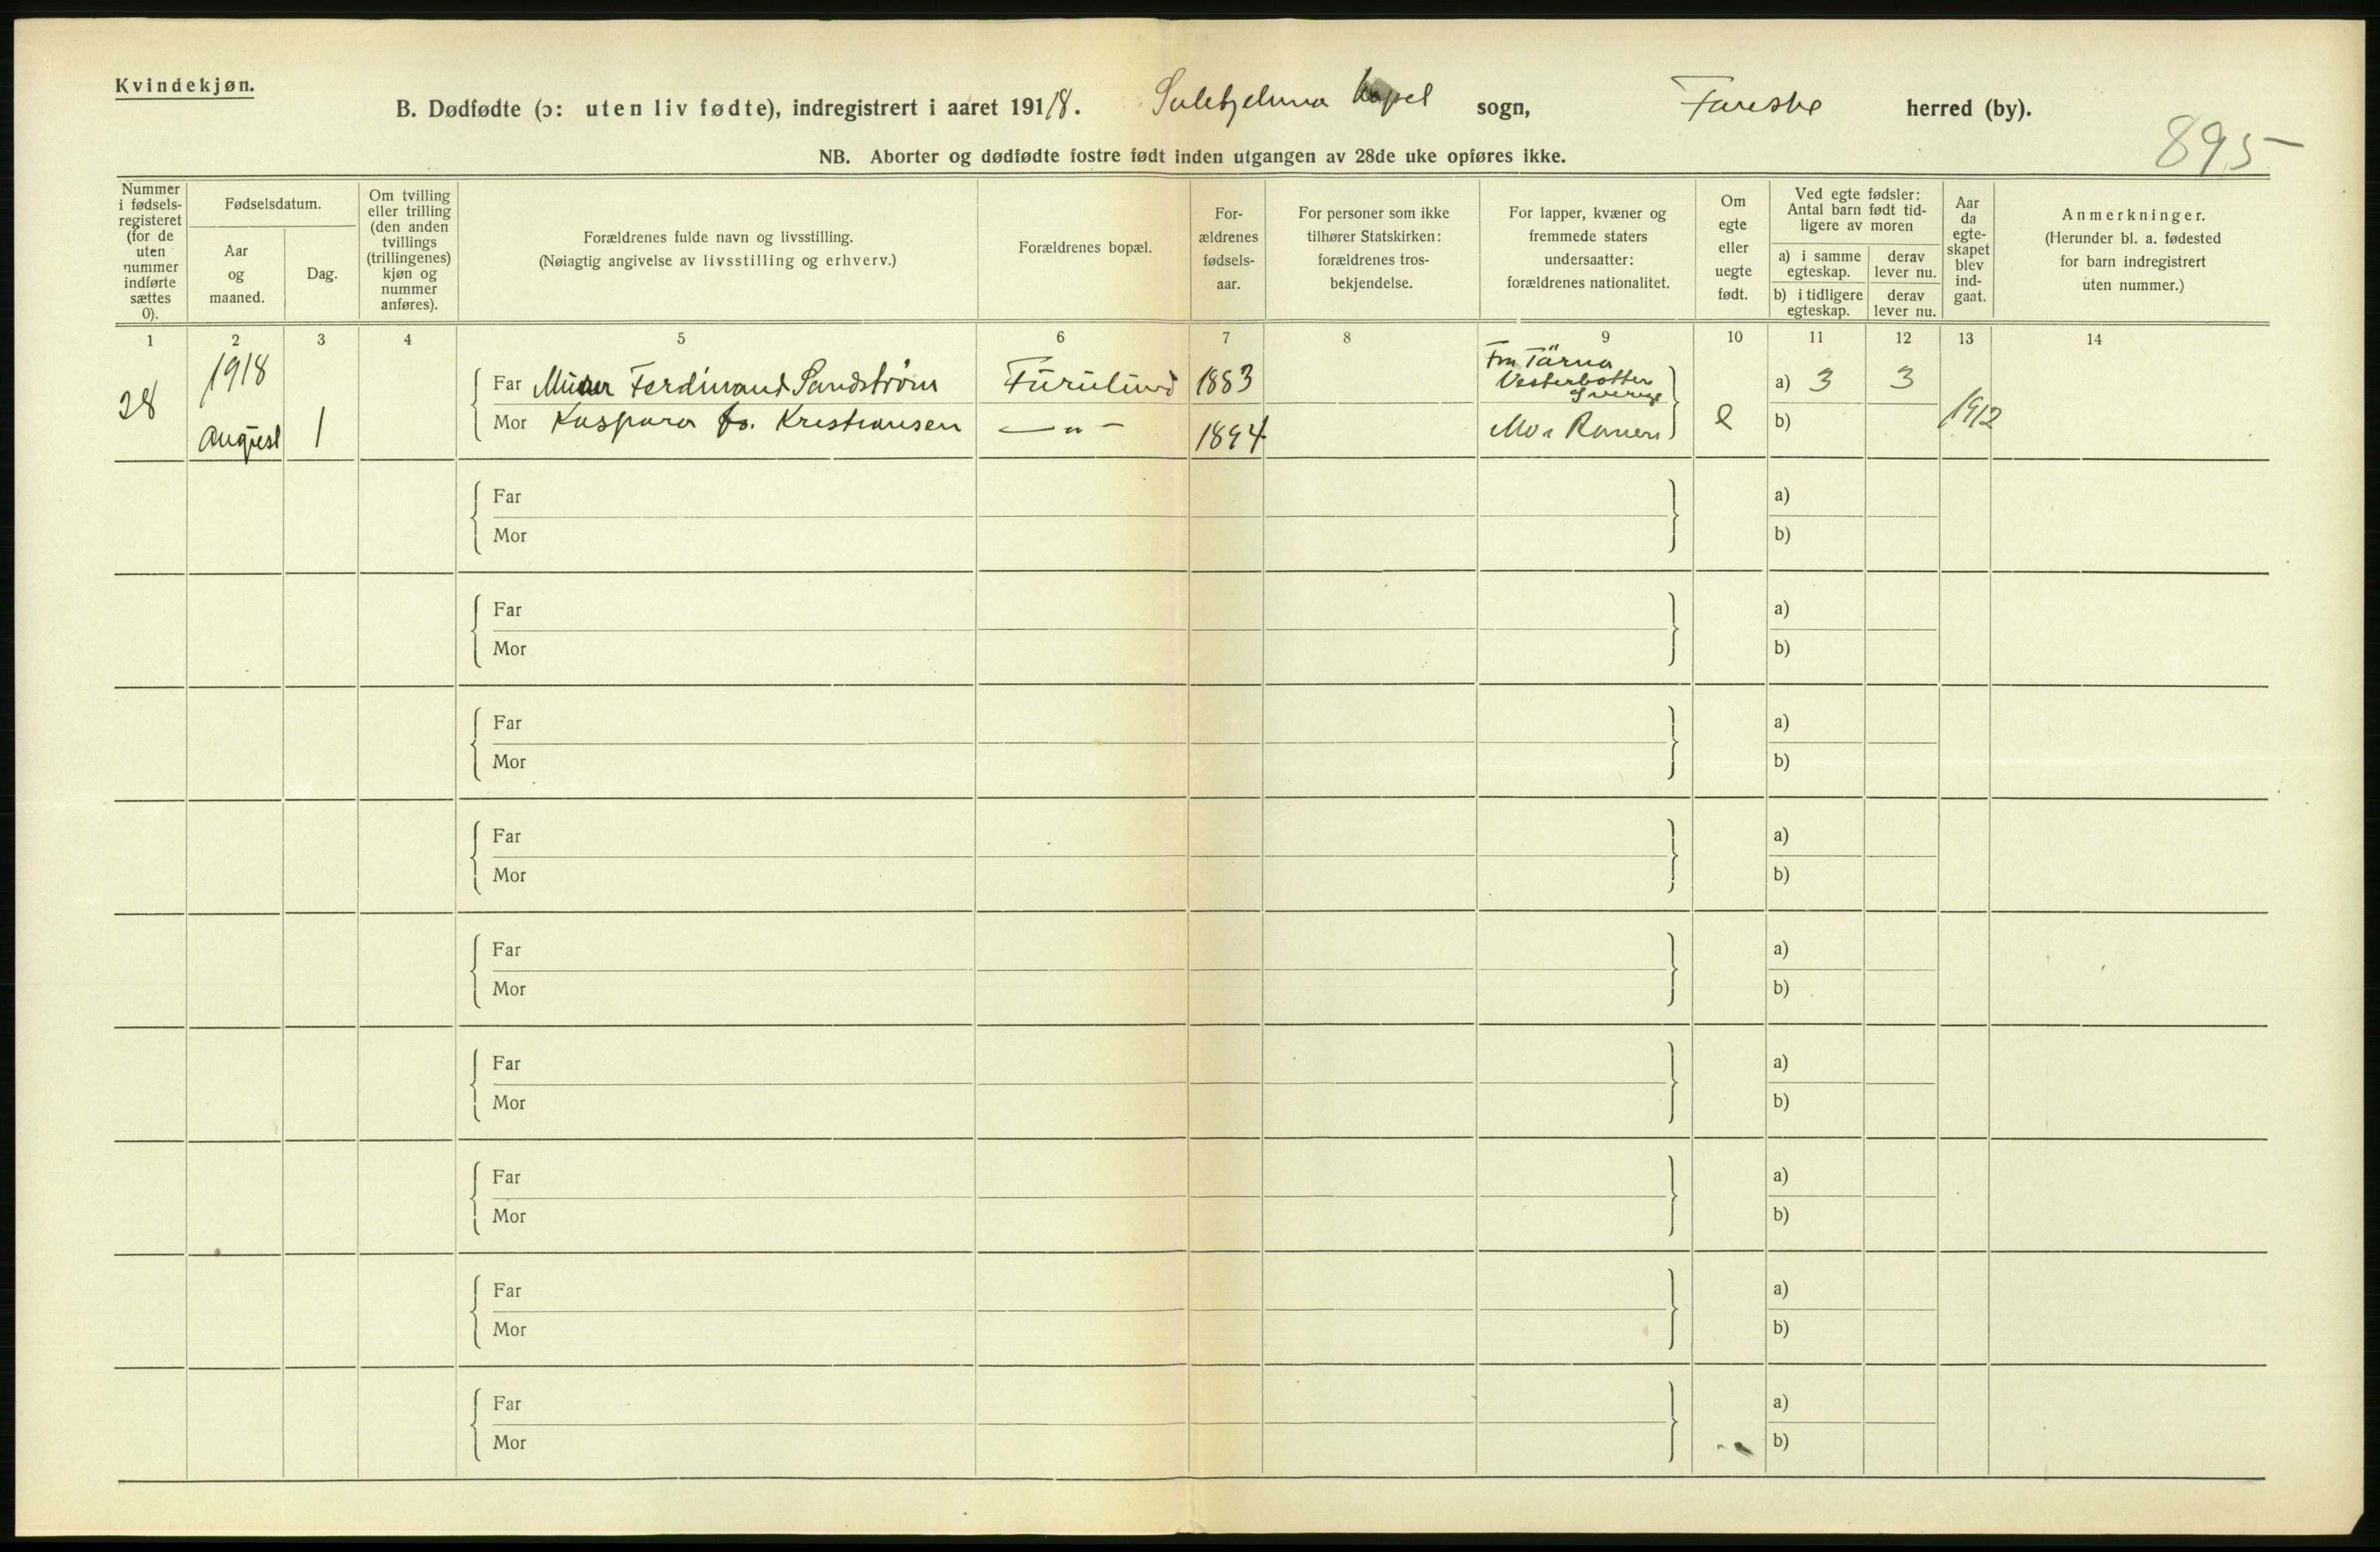 Kvindekjøn.
B. Dødfødte (ɔ: uten liv fødte), indregistrert i aaret 1918. Sulitjelma kapel sogn, Fauske herred (by).
895
NB. Aborter og dødfødte fostre født inden utgangen av 28de uke opføres ikke.
Nummer i fødsels-registeret (for de uten nummer indførte sættes 0).
Fødselsdatum.
Aar og maaned.
Dag.
Om tvilling eller trilling (den anden tvillings (trillingenes) kjøn og nummer anføres).
Forældrenes fulde navn og livsstilling.
(Nøiagtig angivelse av livsstilling og erhverv.)
Forældrenes bopæl.
For-ældrenes fødsels-aar.
For personer som ikke tilhører Statskirken: forældrenes tros-bekjendelse.
For lapper, kvæner og fremmede staters undersaatter: forældrenes nationalitet.
Om egte eller uegte født.
Ved egte fødsler: Antal barn født tid-ligere av moren
a) i samme egteskap.
derav lever nu.
b) i tidligere egteskap.
derav lever nu.
Aar da egte-skapet blev ind-gaat.
Anmerkninger.
(Herunder bl. a. fødested for barn indregistrert uten nummer.)
1 2 3 4 5 6 7 8 9 10 11 12 13 14
28 1918 August 1
Far Murer Ferdinand Sandstrøm Furulund 1883 Fra Tärna Vesterbotten Sverige a) 3 3
Mor Kaspara f. Kristiansen — " — 1894 Mo i Ranen e b) 1912
Far a)
Mor b)
Far a)
Mor b)
Far a)
Mor b)
Far a)
Mor b)
Far a)
Mor b)
Far a)
Mor b)
Far a)
Mor b)
Far a)
Mor b)
Far a)
Mor b)